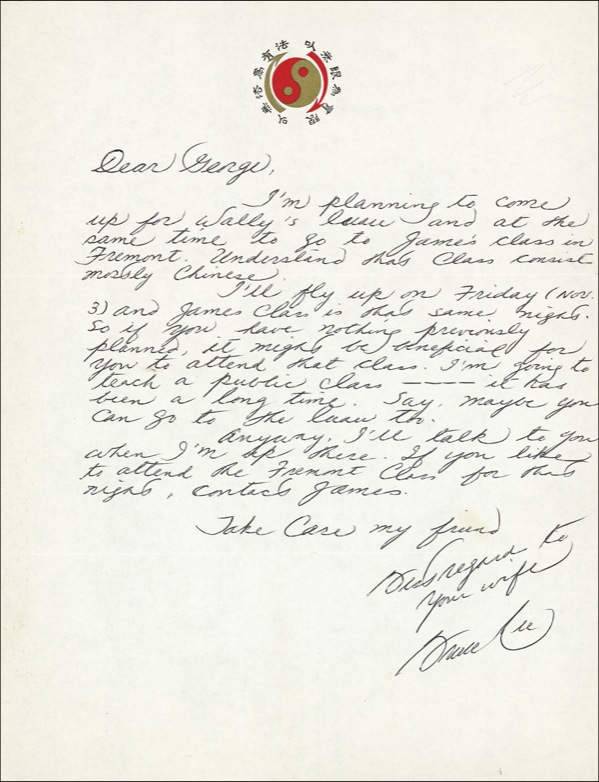 以無法為有法 以無限為有限
Dear George,
I'm planning to come
up for Wally's luau and at the
same time to go to James's class in
Fremont. Understand that Class consist
mostly Chinese.
I'll fly up on Friday (Nov.
3) and James Class is that same night.
So if you have nothing previously
planned, it might be beneficial for
you to attend that class. I'm going to
teach a public class ———— it has
been a long time. Say, maybe you
can go to the luau too.
Anyway, I'll talk to you
when I'm up there. If you like
to attend the Fremont Class for that
night, contact James.
Take Care my friend
Best regard to
your wife
Bruce Lee